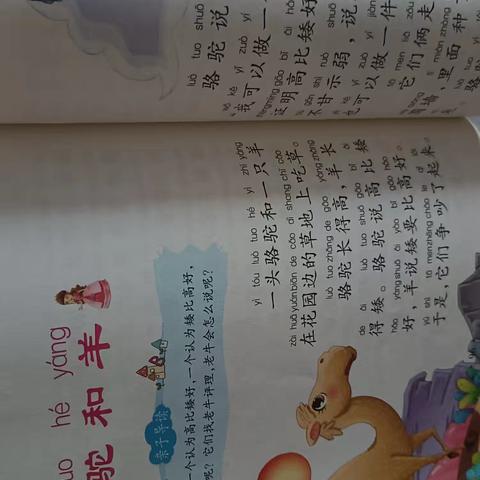 uo hé yáng
驼 和 羊
亲子导读
一个认为高比矮好,一个认为矮比高好,
呢?它们找老牛评理,老牛会怎么说呢?
yì tóu luò tuo hé yì zhī yáng
一头骆驼和一只羊
zài huā yuán biān de cǎo dì shang chī cǎo
在花园边的草地上吃草。
luò tuo zhǎng de gāo yáng zhǎng
骆驼长得高,羊长
de ǎi luò tuo shuō gāo bǐ ǎi
得矮。骆驼说高比矮
hǎo yáng shuō ǎi yào bǐ gāo hǎo
好,羊说矮要比高好。
yú shì tā men zhēng chǎo le qǐ lái
于是,它们争吵了起来。
luò tuo shuō
骆驼说
wǒ kě yǐ zuò yí
“我可以做一
zhèng míng gāo bǐ ǎi hǎo
证明高比矮好
bù gān shì ruò shuō
不甘示弱,说
yě kě yǐ zuò yí jiàn
也可以做一件
tā men liǎ zǒu
它们俩走
lǐ miàn zhòng
墙,里面种
luò tuo
骆驼